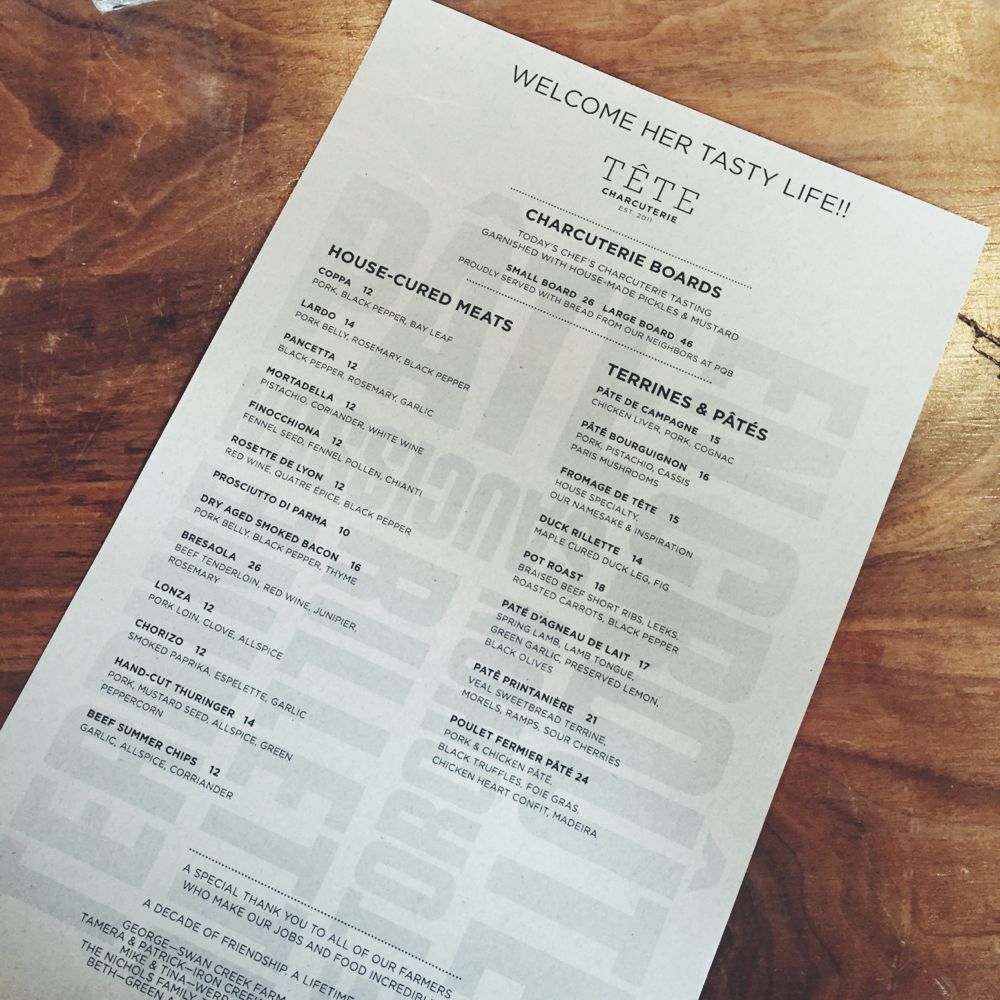 WELCOME HER TASTY LIFE!!
TÊTE
CHARCUTERIE
EST. 2011
CHARCUTERIE BOARDS
TODAY'S CHEF'S CHARCUTERIE TASTING
GARNISHED WITH HOUSE-MADE PICKLES & MUSTARD
SMALL BOARD 26 LARGE BOARD 46
PROUDLY SERVED WITH BREAD FROM OUR NEIGHBORS AT PQB
HOUSE-CURED MEATS
COPPA 12
PORK, BLACK PEPPER, BAY LEAF
LARDO 14
PORK BELLY, ROSEMARY, BLACK PEPPER
PANCETTA 12
BLACK PEPPER, ROSEMARY, GARLIC
MORTADELLA 12
PISTACHIO, CORIANDER, WHITE WINE
FINOCCHIONA 12
FENNEL SEED, FENNEL POLLEN, CHIANTI
ROSETTE DE LYON 12
RED WINE, QUATRE ÉPICE, BLACK PEPPER
PROSCIUTTO DI PARMA 10
DRY AGED SMOKED BACON 16
PORK BELLY, BLACK PEPPER, THYME
BRESAOLA 26
BEEF TENDERLOIN, RED WINE, JUNIPIER,
ROSEMARY
LONZA 12
PORK LOIN, CLOVE, ALLSPICE
CHORIZO 12
SMOKED PAPRIKA, ESPELETTE, GARLIC
HAND-CUT THURINGER 14
PORK, MUSTARD SEED, ALLSPICE, GREEN
PEPPERCORN
BEEF SUMMER CHIPS 12
GARLIC, ALLSPICE, CORRIANDER
TERRINES & PÂTÉS
PÂTE DE CAMPAGNE 15
CHICKEN LIVER, PORK, COGNAC
PÂTÉ BOURGUIGNON 16
PORK, PISTACHIO, CASSIS
PARIS MUSHROOMS
FROMAGE DE TÊTE 15
HOUSE SPECIALTY,
OUR NAMESAKE & INSPIRATION
DUCK RILLETTE 14
MAPLE CURED DUCK LEG, FIG
POT ROAST 18
BRAISED BEEF SHORT RIBS, LEEKS,
ROASTED CARROTS, BLACK PEPPER
PATÉ D'AGNEAU DE LAIT 17
SPRING LAMB, LAMB TONGUE,
GREEN GARLIC, PRESERVED LEMON,
BLACK OLIVES
PATÉ PRINTANIÈRE 21
VEAL SWEETBREAD TERRINE,
MORELS, RAMPS, SOUR CHERRIES
POULET FERMIER PÂTÉ 24
PORK & CHICKEN PÂTE,
BLACK TRUFFLES, FOIE GRAS,
CHICKEN HEART CONFIT, MADEIRA
A SPECIAL THANK YOU TO ALL OF OUR FARMERS
WHO MAKE OUR JOBS AND FOOD INCREDIBL
A DECADE OF FRIENDSHIP. A LIFETIME
GEORGE—SWAN CREEK FARM
TAMERA & PATRICK—IRON CREE
MIKE & TINA—WER
THE NICHOLS FAMILY
BETH—GREEN A